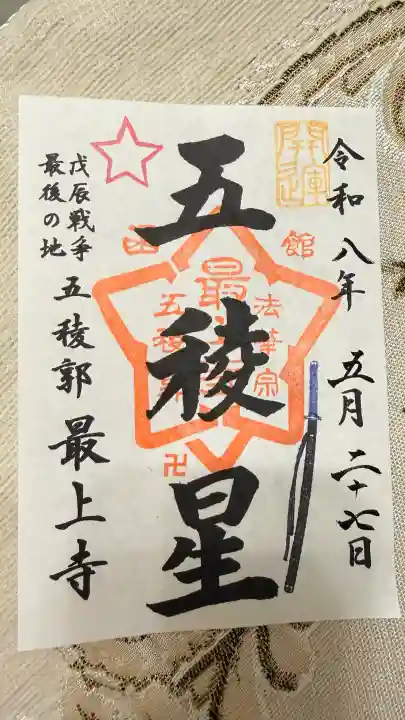 令和八年 五月二十七日
開運
五稜星
函館
法華宗
最上
五稜
卍
戊辰戦争
最後の地
五稜郭 最上寺